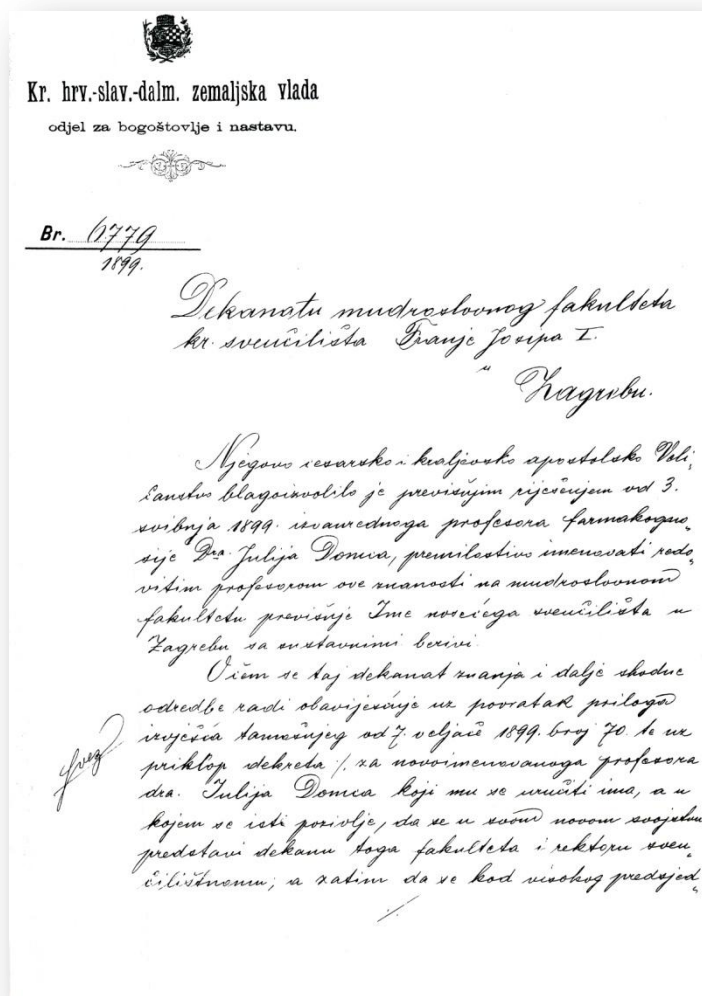 Kr. hrv.-slav.-dalm. zemaljska vlada
odjel za bogoštovlje i nastavu.
Br. 6779
1899.
Dekanatu mudroslovnog fakulteta
kr. sveučilišta Franje Josipa I.
u
Zagrebu.
Njegovo cesarsko i kraljevsko apostolsko Veli„
čanstvo blagoizvolilo je previšnjim riješenjem od 3.
svibnja 1899. izvanrednoga profesora farmakogno„
sije Dra. Julija Domca, premilostivo imenovati redo„
vitim profesorom ove znanosti na mudroslovnom
fakultetu previšnje Ime nosećega sveučilišta u
Zagrebu sa sustavnimi berivi.
O čem se taj dekanat znanja i dalje shodne
odredbe radi obaviješćuje uz povratak priloga
izvješća tamošnjeg od 7. veljače 1899. broj 70. te uz
priklop dekreta /. za novoimenovanoga profesora
dra. Julija Domca koji mu se uručiti ima, a u
kojem se isti pozivlje, da se u svom novom svojstvu
predstavi dekanu toga fakulteta i rektoru sveu„
čilištnomu; a zatim da se kod visokog predsjed„
./.